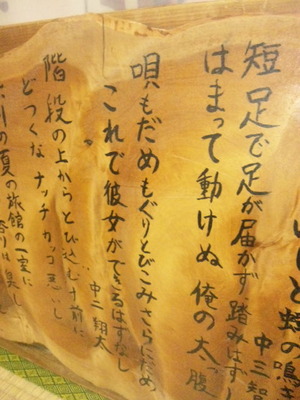 と蝉の鳴き
中三 智
短足で足が届かず踏みはずし
はまって動けぬ俺の太っ腹
唄もだめもぐりとびこみさらにだめ
これで彼女ができるはずなし
中二 翔太
階段の上からとび込む寸前に
どつくなナッチカッコ悪いし
川の夏の旅館の一室に